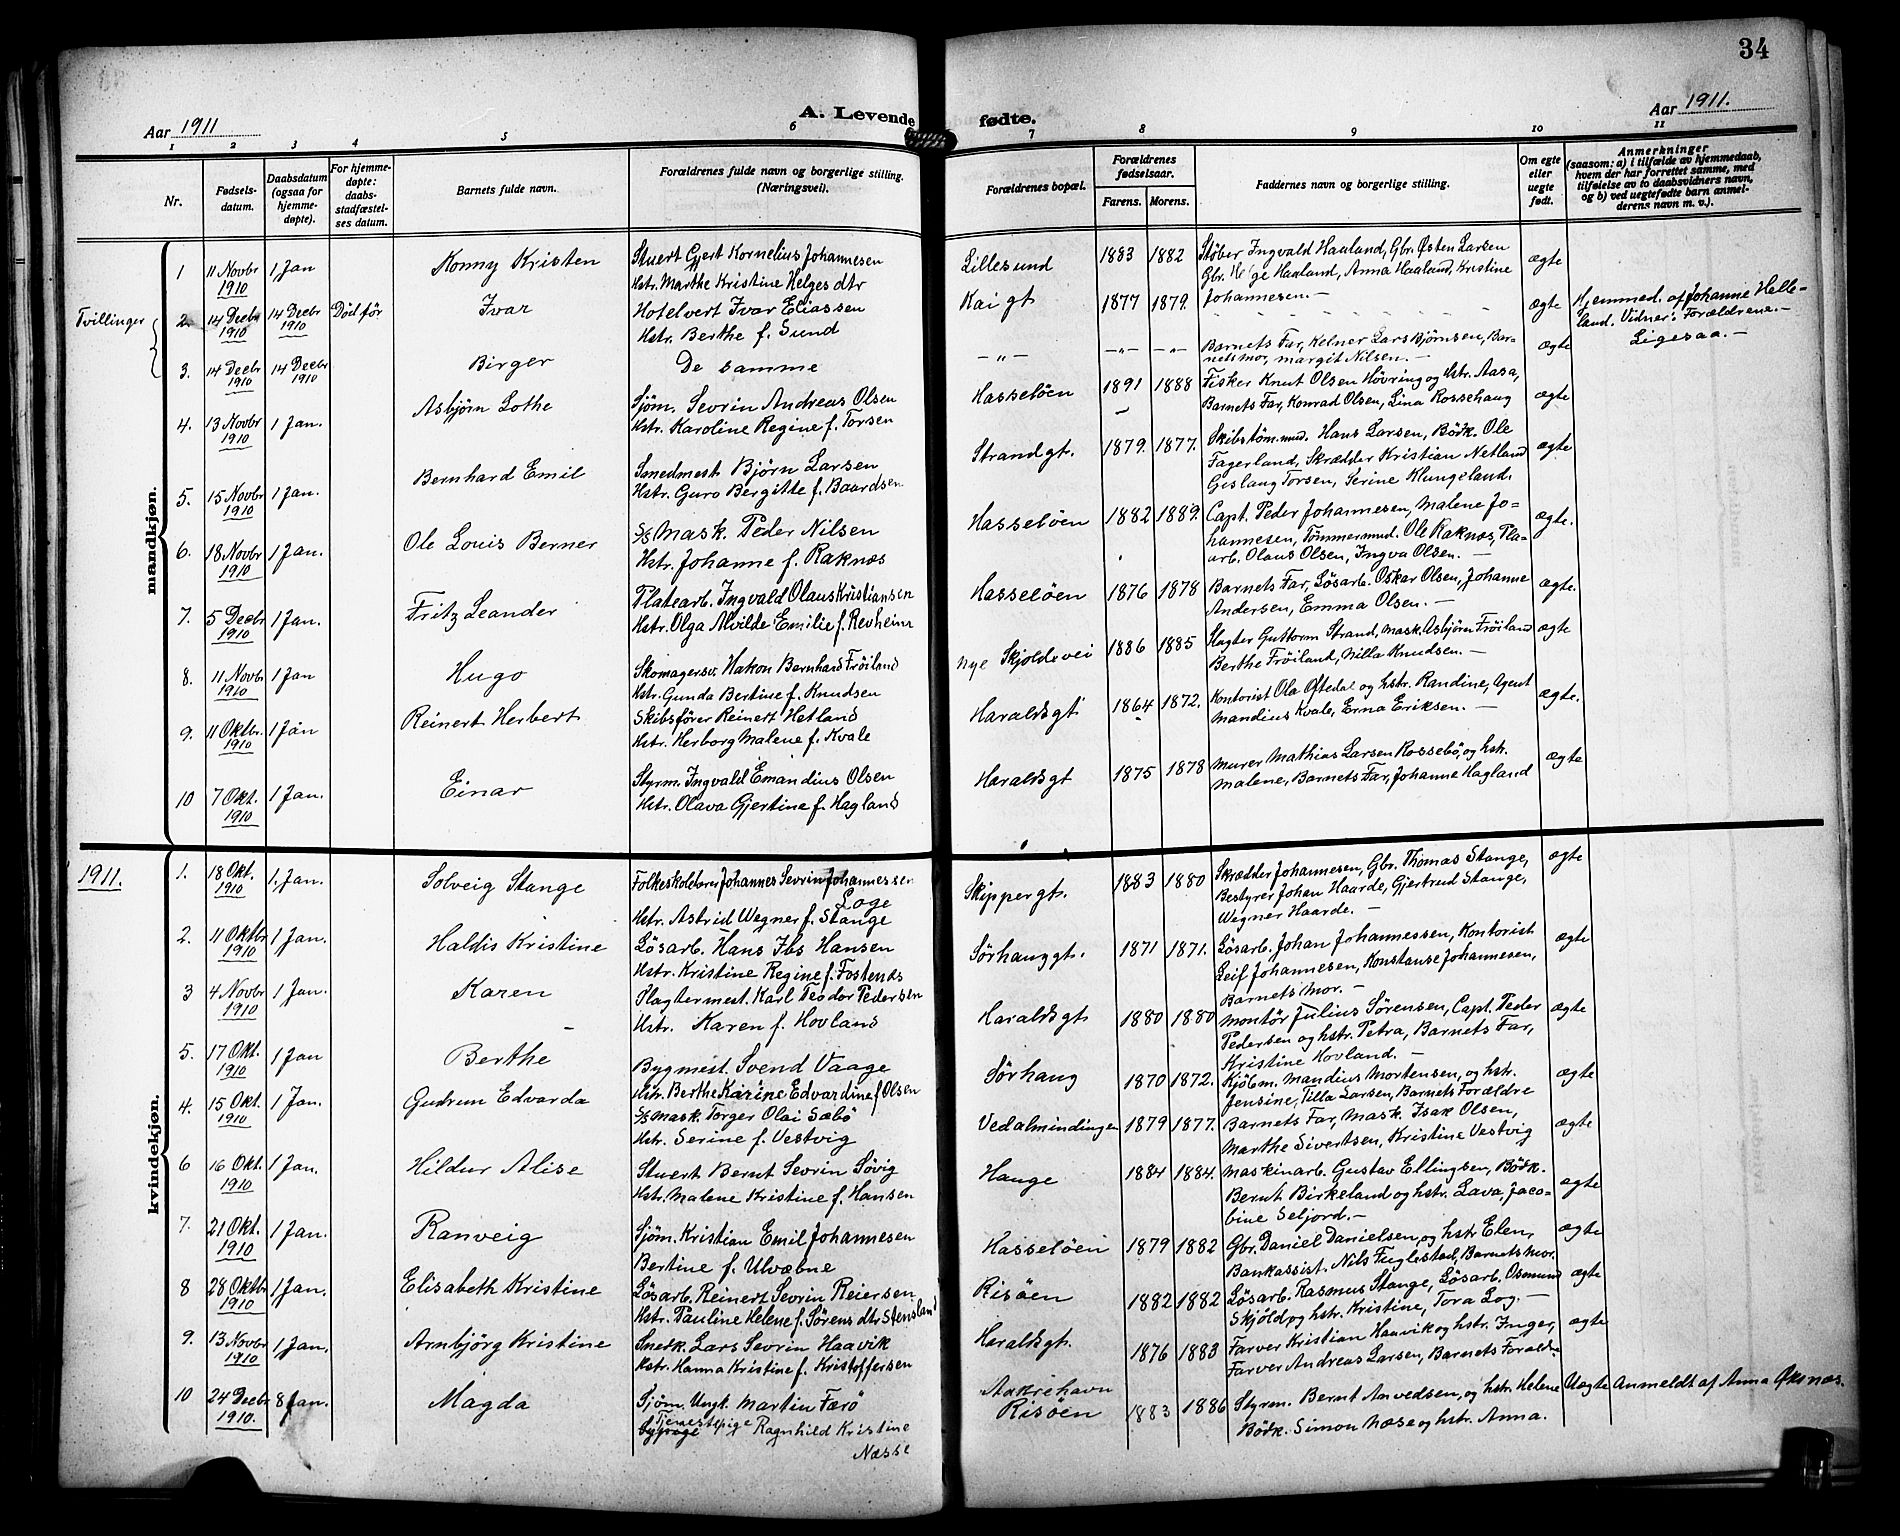 34
Aar 1911
A. Levende
fødte.
Aar 1911.
1 2 3 4 5 6 7 8 9 10 11
Nr.
Fødsels-
datum.
Daabsdatum
(ogsaa for
hjemme-
døpte).
For hjemme-
døpte:
daabs-
stadfæstel-
ses datum.
Barnets fulde navn.
Forældrenes fulde navn og borgerlige stilling.
(Næringsvei).
Forældrenes bopæl.
Forældrenes
fødselsaar.
Farens. Morens.
Faddernes navn og borgerlige stilling.
Om egte
eller
uegte
født.
Anmerkninger
(saasom: a) i tilfælde av hjemmedaab,
hvem der har forrettet samme, med
tilføielse av to daabsvidners navn,
og b) ved uegtefødte barn anmel-
derens navn m. v.).
mandkjøn.
1 11 Novbr 1910 1 Jan Konny Kristen
Stuert Gjert Kornelius Johannesen
Hstr. Marthe Kristine Helges dtr
Lillesund 1883 1882
Støber Ingvald Haaland, Gbr. Østen Larsen
Gbr. Helge Haaland, Anna Haaland, Kristine
Johannesen. —
ægte
Tvillinger
2. 14 Decbr 1910 14 Decbr 1910 Død før Ivar
Hotelvert Ivar Eliassen
Hstr. Berthe f. Sund
Kaigt 1877 1879.
ægte
Hjemmed. af Johanne Helle-
land. Vidner: Forældrene. —
3. 14 Decbr 1910 14 Decbr 1910 Birger
De samme
—"— —"— —"—
Barnets Far, Kelner Lars Bjørnsen, Bar-
nets mor, Margit Nilsen. —
ægte
Ligesaa. —
4. 13 Novbr 1910 1 Jan. Asbjørn Lothe
Sjøm. Sevrin Andreas Olsen
Hstr. Karoline Regine f. Torsen
Hasseløen 1891 1888
Fisker Knut Olsen Høvring og hstr. Aasa,
Barnets Far, Konrad Olsen, Lina Rossehaug
ægte
5. 15 Novbr 1910 1 Jan. Bernhard Emil
Smedmest. Bjørn Larsen
Hstr. Guro Bergitte f. Baardsen
Strandgt. 1879. 1877.
Skibstøm.mnd. Hans Larsen, Bødk. Ole
Fagerland, Skrædder Kristian Netland
Geslaug Torsen, Serine Klungeland.
ægte
6. 18 Novbr 1910 1 Jan. Ole Louis Berner
S/S Mask. Peder Nilsen
Hstr. Johanne f. Raknæs
Hasseløen 1882 1889.
Capt. Peder Johannesen, Malene Jo-
hannesen, Tømmermnd. Ole Raknæs, Pla-
arb. Olaus Olsen, Ingva Olsen. —
ægte.
7. 5 Decbr 1910 1 Jan. Fritz Leander
Platearb. Ingvald Olaus Kristiansen
Hstr. Olga Alvilde Emilie f. Revheim
Hasseløen 1876 1878
Barnets Far, Løsarb. Oskar Olsen, Johanne
Andersen, Emma Olsen. —
ægte.
8. 11 Novbr 1910 1 Jan Hugo
Skomagersv. Hakon Bernhard Frøiland
Hstr. Gunda Bertine f. Knudsen
nye Skjoldevei 1886 1885
Slagter Guttorm Strand, Mask. Asbjørn Frøiland
Berthe Frøiland, Nilla Knudsen. —
ægte
9. 11 Oktbr. 1910 1 Jan Reinert Herbert
Skibsfører Reinert Hetland
Hstr. Herborg Malene f. Kvale
Haraldsgt 1864 1872.
Kontorist Ola Oftedal og hstr. Randine, Agent
Mandius Kvale, Erna Eriksen. —
ægte.
10 7 Okt. 1910 1 Jan. Einar
Styrm. Ingvald Emandius Olsen
Hstr. Olava Gjertine f. Hagland
Haraldsgt 1875 1878
Murer Mathias Larsen Rossebø, og hstr.
Malene, Barnets Far, Johanne Hagland
ægte
1911.
kvindekjøn.
1. 18 Okt. 1910 1. Jan. Solveig Stange
Folkeskolelærer Johannes Sevrin Johannessen
Loge
Hstr. Astrid Wegner f. Stange
Skippergt. 1883 1880
Skrædder Johannesen, Gbr. Thomas Stange,
Bestyrer Johan Haarde, Gjertrud Stange,
Wegner Haarde. —
ægte
2. 11 Oktbr 1910 1 Jan. Haldis Kristine
Løsarb. Hans Ibs Hansen
Hstr. Kristine Regine f. Fostenæs
Sørhauggt. 1871 1871.
Løsarb. Johan Johannessen, Kontorist
Leif Johannesen, Konstanse Johannesen,
Barnets Mor. —
ægte
3 4 Novbr 1910 1 Jan. Karen
Slagtermest. Karl Teodor Pedersen
Hstr. Karen f. Hovland
Haraldsgt 1880 1880
Montør Julius Sørensen, Capt. Peder
Pedersen og hstr. Petra, Barnets Far,
Kristine Hovland. —
ægte
5. 17 Okt. 1910 1 Jan Berthe
Bygmest. Svend Vaage
Hstr. Berthe Karine Edvardine f Olsen
Sørhaug 1870 1872.
Kjøbm. Mandius Mortensen, og hstr.
Jensine, Tilla Larsen, Barnets Forældre
ægte
4. 15 Okt. 1910 1 Jan. Gudrun Edvarda
S/S Mask Torger Olai Sæbø
Hstr. Serine f. Vestvig
Vedalmindingen 1879 1877.
Barnets Far, Mask. Isak Olsen,
Marthe Sivertsen, Kristine Vestvig
ægte
6 16 Okt. 1910 1 Jan. Hildur Alise
Stuert Bernt Sevrin Søvig
Hstr. Malene Kristine f. Hansen
Hauge 1884 1884.
Maskinarb. Gustav Ellingsen, Bødk.
Bernt Birkeland og hstr. Lava, Jaco-
bine Seljord. —
ægte
7. 21 Okt. 1910 1 Jan. Ranveig
Sjøm. Kristian Emil Johannesen
Bertine f. Ulvæbne
Hasseløen 1879 1882
Gbr. Daniel Danielsen, og hstr Elen,
Bankassist. Nils Fuglestad, Barnets Mor.
ægte
8 28 Oktbr 1910 1 Jan. Elisabeth Kristine
Løsarb. Reinert Sevrin Reiersen
Hstr. Pauline Helene f. Sørens dtr Stensland
Risøen 1882 1882
Løsarb. Rasmus Stange, Løsarb. Osmund
Skjold og hstr. Kristine, Tora Log. —
ægte
9. 13 Novbr 1910 1 Jan. Arnbjørg Kristine
Snedk. Lars Sevrin Haavik
Hstr. Hanna Kristine f. Kristoffersen
Haraldsgt. 1876 1883
Farver Kristian Haavik og hstr. Inger,
Farver Andreas Larsen, Barnets Foræld.
ægte
10 24 Decbr 1910. 8 Jan. Magda
Sjøm. Ungk. Martin Færø
Tjenestepige Ragnhild Kristine
Næsse
Aakrehavn
Risøen 1883 1886
Styrm. Bernt Anvedsen, og hstr. Helene
Bødk. Simon Næse og hstr. Anna.
Uægte
Anmeldt af Anna Øksnæs.